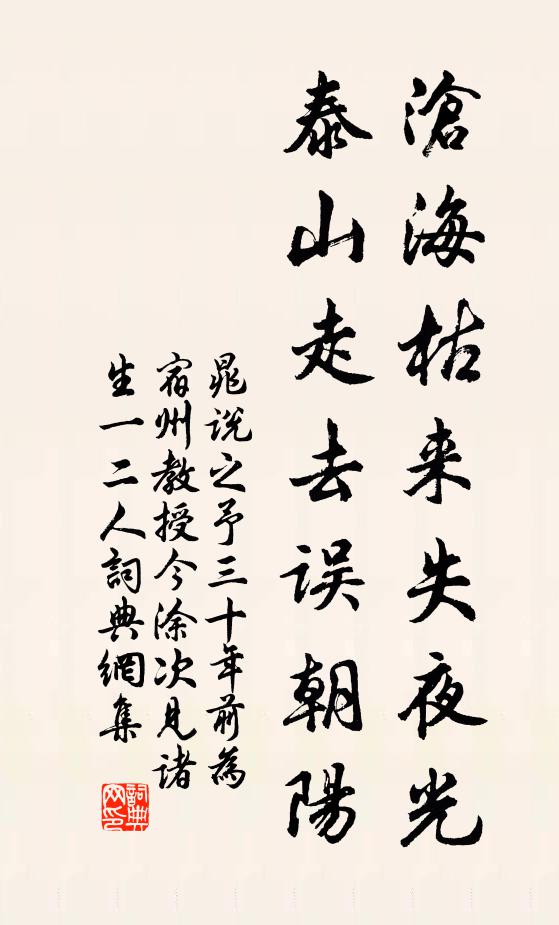 滄海枯来失夜光
泰山走去误朝陽
晁说之予三十年前為
宿州教授今涂次見諸
生一二人詞典網集
詞典网印